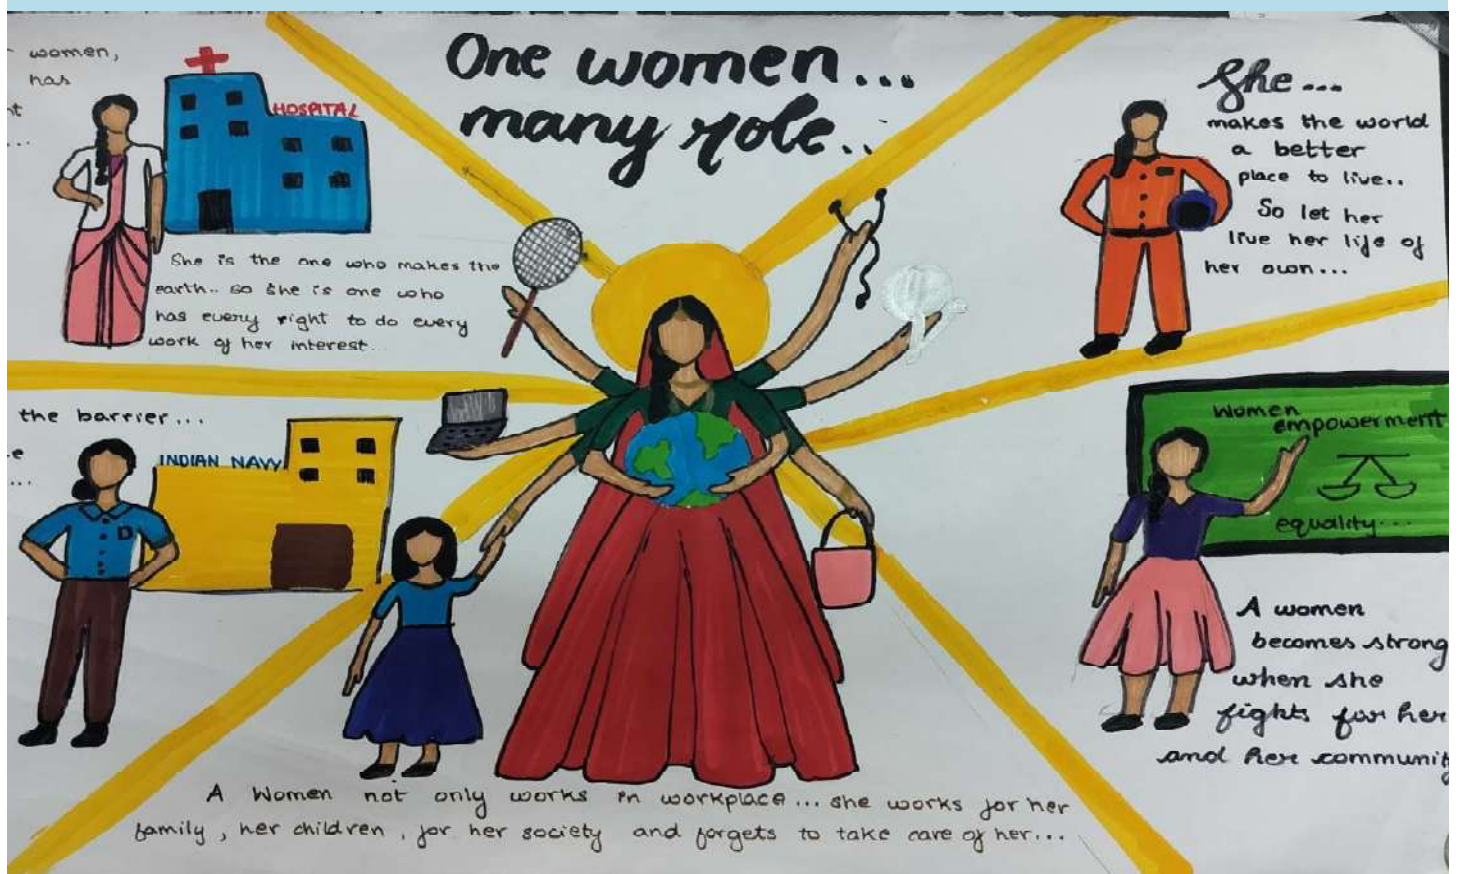 One women...
many role..
women,
has
...
HOSPITAL
She is the one who makes the
earth.. so she is one who
has every right to do every
work of her interest...
She...
makes the world
a better
place to live..
So let her
live her life of
her own...
the barrier...
...
INDIAN NAVY
Women
empowerment
equality...
A women
becomes strong
when she
fights for her
and her communit
A Women not only works in workplace... she works for her
family, her children, for her society and forgets to take care of her...